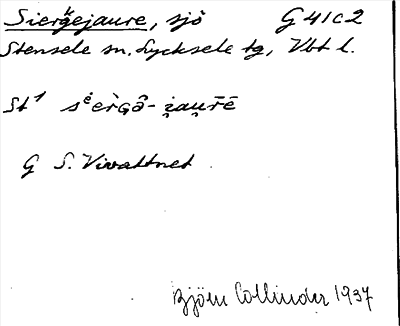 Siergejaure, sjö G 41c2
Stensele sn, Lycksele tg, Vbt l.
St¹ sierGə̂- i̯au̯rē
G S. Vivattnet
Björn Collinder 1937